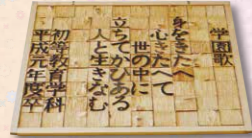 学園歌
身をきたへ
心きたへて
世の中に
立ちてかひある
人と生きなむ
初等教育学科
平成元年度卒